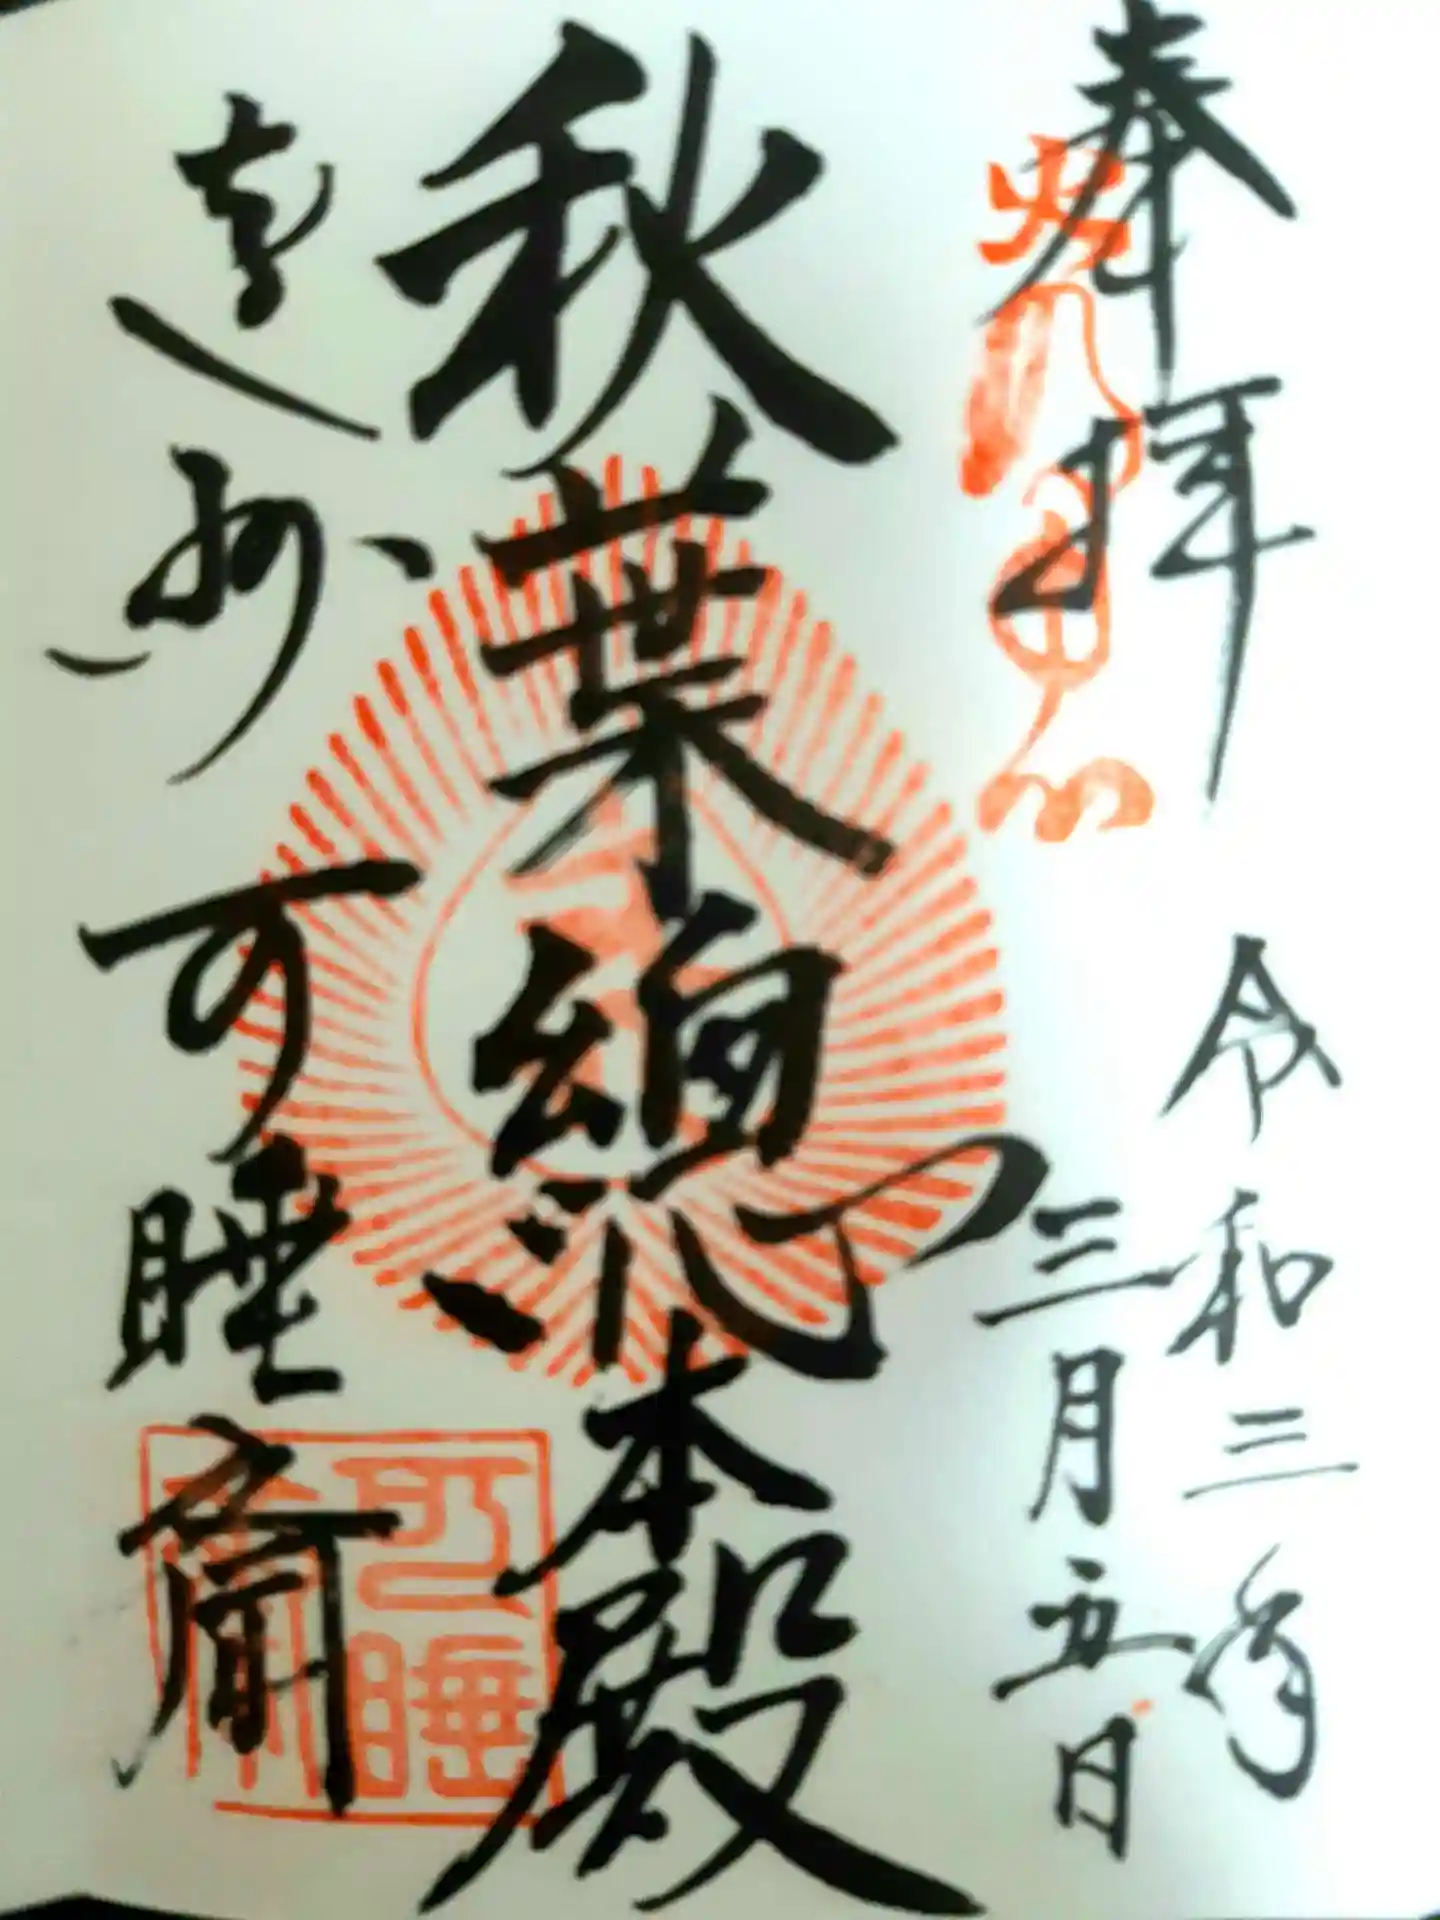 奉拝
令和三年
三月五日
秋葉總本殿
遠州
可睡齋
可睡